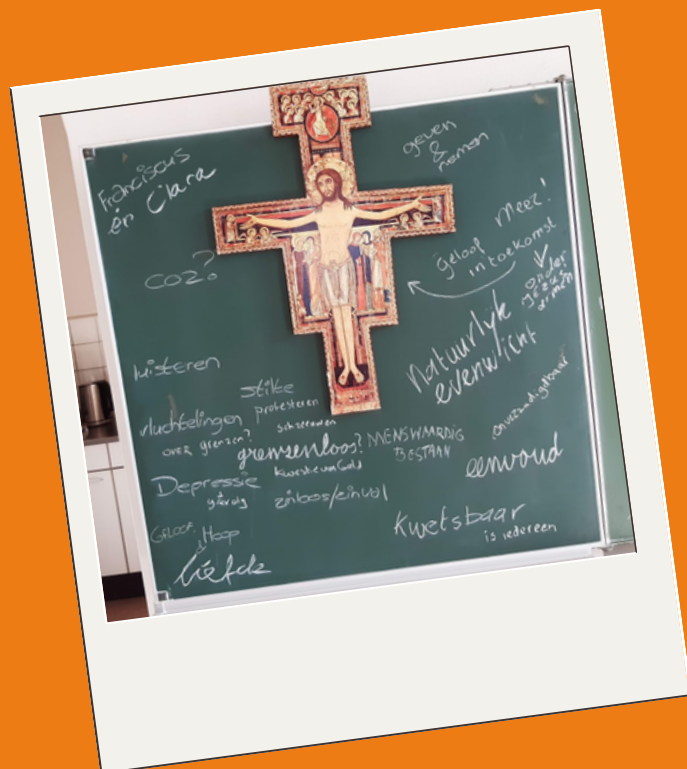 Franciscus
én Clara
geven
&
nemen
Meer!
geloof
in toekomst
onder
armen
Natuurlijk
evenwicht
luisteren
stilte
protesteren
schreeuwen
vluchtelingen
over grenzen?
grenzenloos?
MENSWAARDIG
BESTAAN
eenvoud
Depressie
gevolg
zinloos/einvol
Kwetsbaar
is iedereen
Geloof,
Hoop
&
liefde